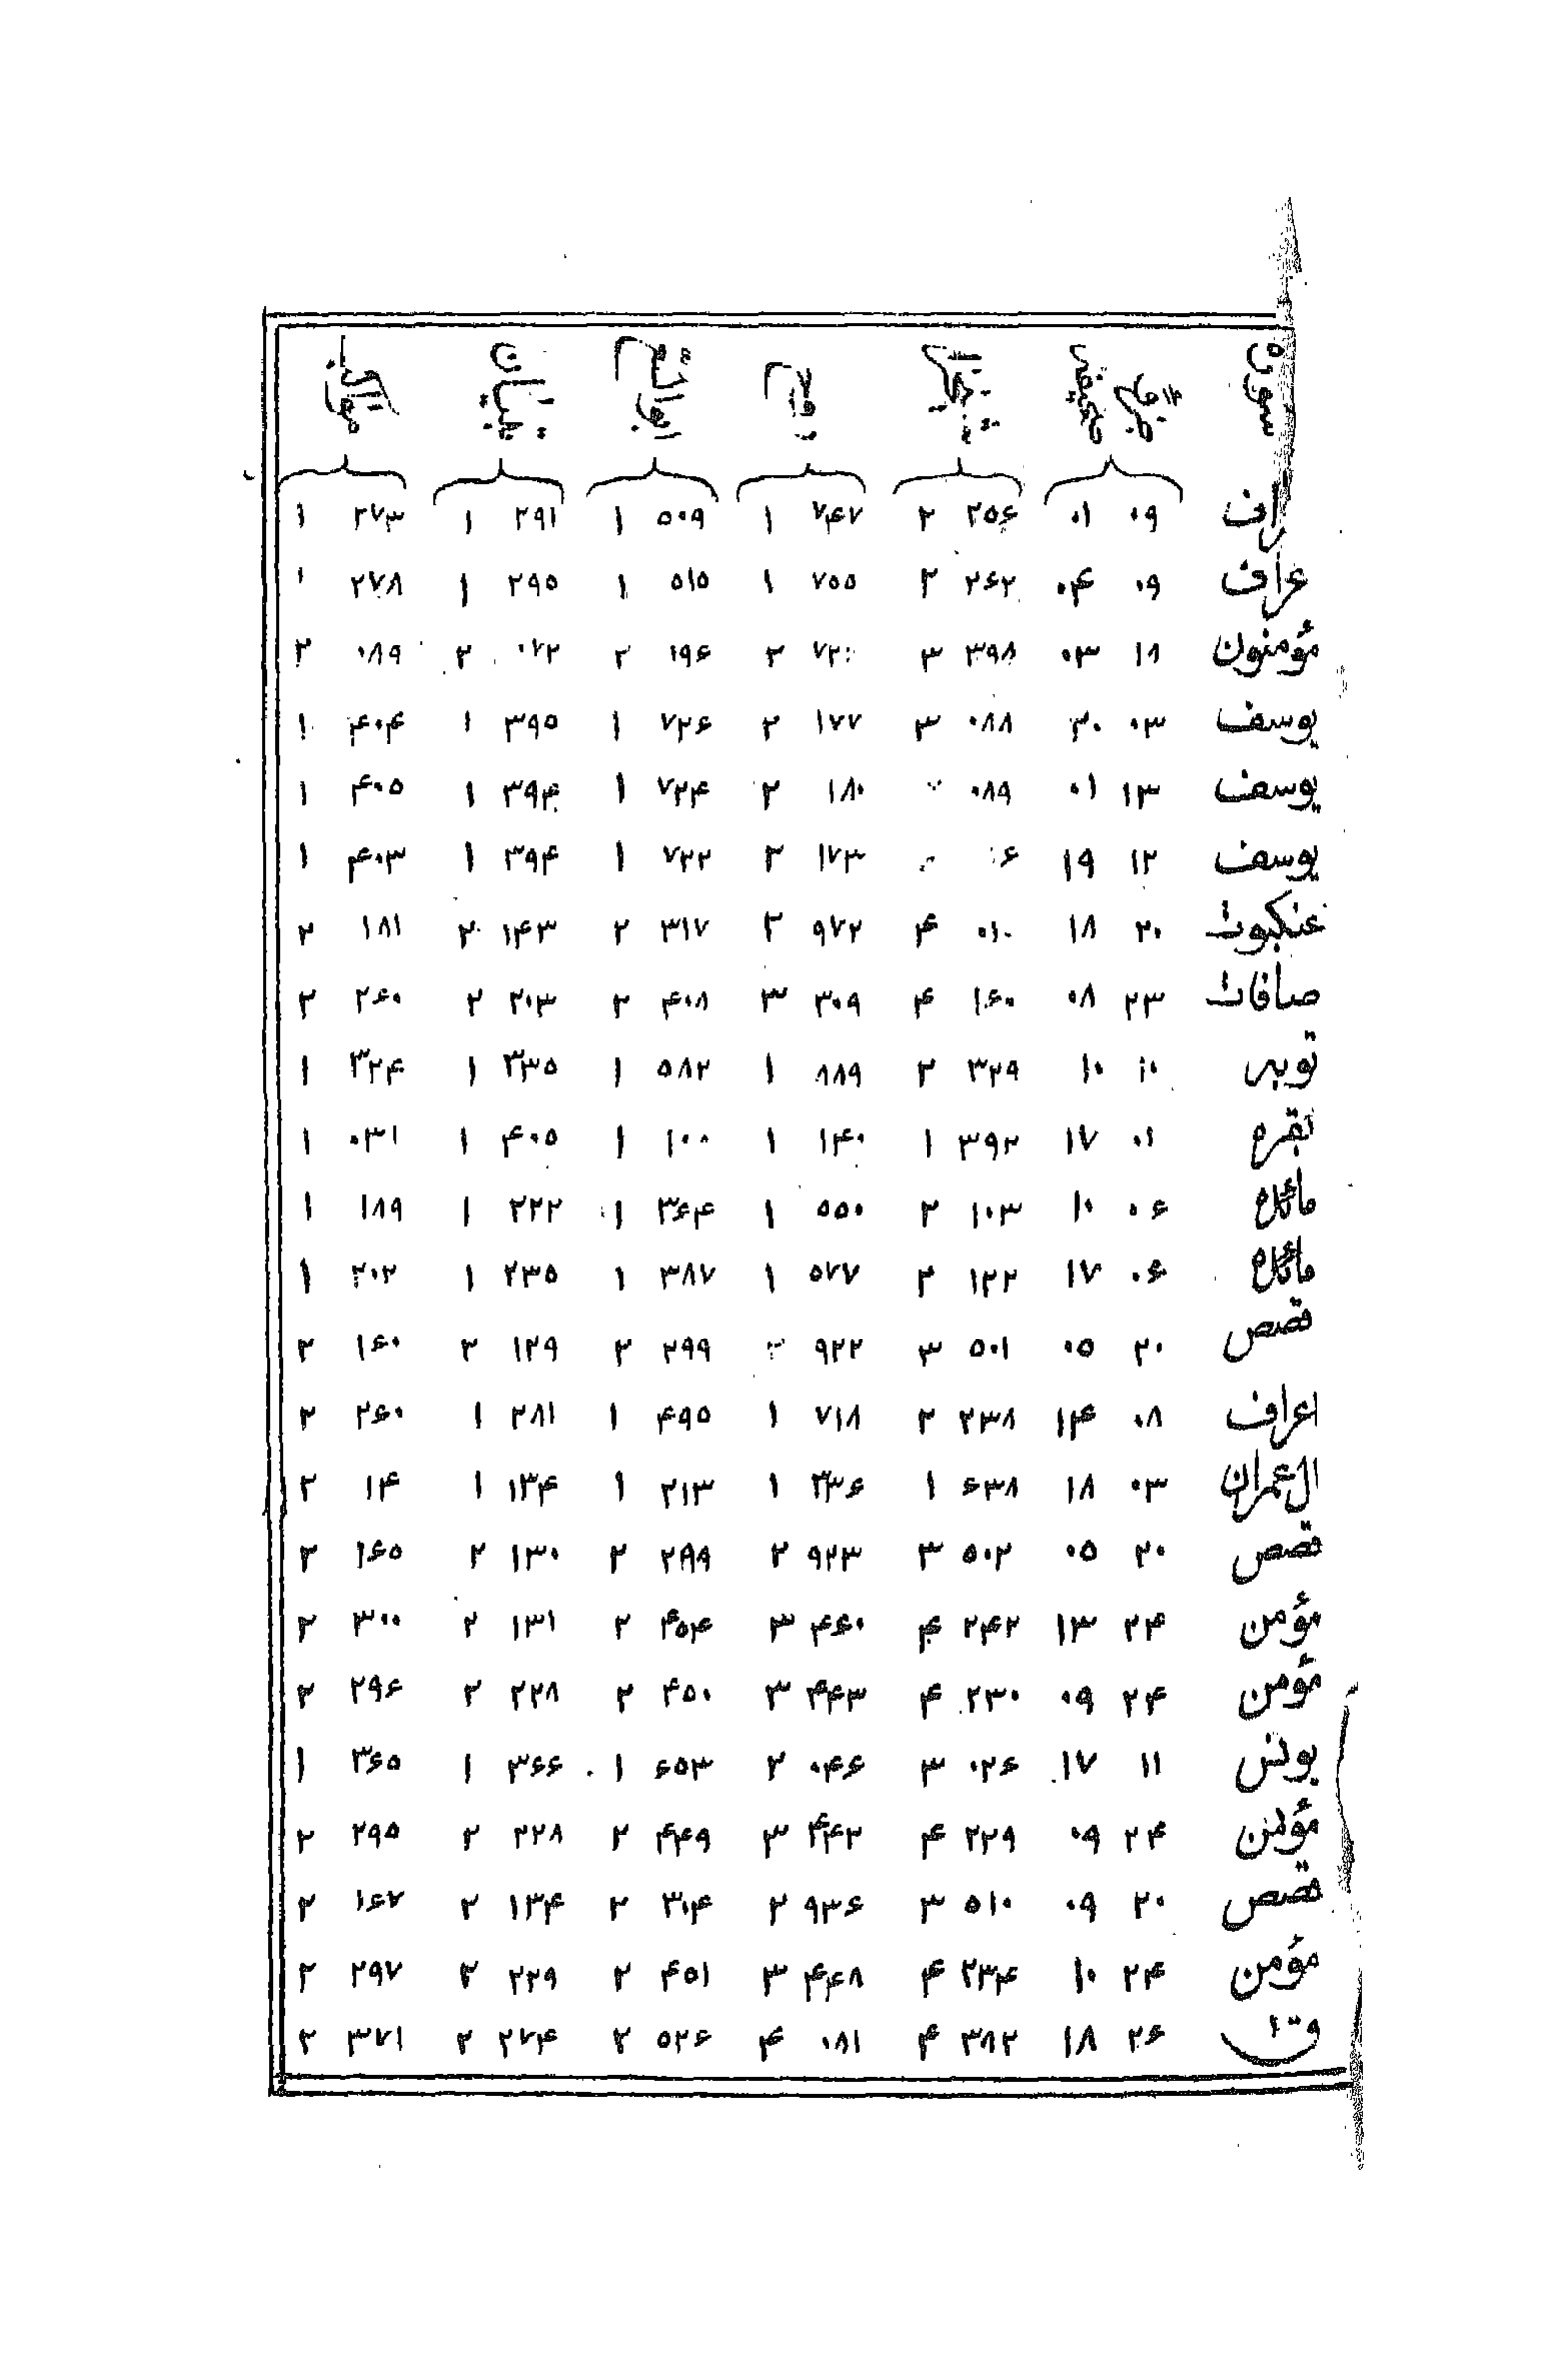 سوره
اف ۰۹ ۰۱ ۲۵۶ ۲ ۷۴۷ ۱ ۵۰۹ ۱ ۲۹۱ ۱ ۲۷۳ ۱
عراف ۰۹ ۰۴ ۲۶۲ ۲ ۷۵۵ ۱ ۵۱۵ ۱ ۲۹۵ ۱ ۲۷۸ ۱
مؤمنون ۱۸ ۰۳ ۳۹۸ ۳ ۷۲۰ ۲ ۱۹۶ ۲ ۰۷۲ ۲ ۰۸۹ ۲
یوسف ۰۳ ۲۰ ۰۸۸ ۳ ۱۷۷ ۲ ۷۲۶ ۱ ۳۹۵ ۱ ۴۰۴ ۱
یوسف ۱۳ ۰۱ ۰۸۹ ۱۸۰ ۲ ۷۲۴ ۱ ۳۹۴ ۱ ۴۰۵ ۱
یوسف ۱۲ ۱۹ ۱۷۳ ۲ ۷۲۲ ۱ ۳۹۴ ۱ ۴۰۳ ۱
عنکبوت ۲۰ ۱۸ ۰۱۰ ۴ ۹۷۲ ۲ ۳۱۷ ۲ ۱۴۳ ۲ ۱۸۱ ۲
صافات ۲۳ ۰۸ ۱۶۰ ۴ ۳۰۹ ۳ ۴۰۸ ۲ ۲۰۳ ۲ ۲۶۰ ۲
توبه ۱۰ ۱۰ ۳۲۹ ۲ ۸۸۹ ۱ ۵۸۲ ۱ ۳۳۵ ۱ ۳۲۴ ۱
بقره ۰۱ ۱۷ ۳۹۲ ۱ ۱۴۰ ۱ ۱۰۰ ۱ ۴۰۵ ۱ ۰۳۱ ۱
مائده ۰۶ ۱۰ ۱۰۳ ۲ ۵۵۰ ۱ ۳۶۴ ۱ ۲۲۲ ۱ ۱۸۹ ۱
مائده ۰۶ ۱۷ ۱۲۲ ۲ ۵۷۷ ۱ ۳۸۷ ۱ ۲۳۵ ۱ ۲۰۲ ۱
قصص ۲۰ ۰۵ ۵۰۱ ۳ ۹۲۲ ۲ ۲۹۹ ۲ ۱۲۹ ۲ ۱۶۰ ۲
اعراف ۰۸ ۱۴ ۲۳۸ ۲ ۷۱۸ ۱ ۴۹۵ ۱ ۲۸۱ ۱ ۲۶۰ ۲
ال عمران ۰۳ ۱۸ ۶۳۸ ۱ ۳۳۶ ۱ ۲۱۳ ۱ ۱۳۴ ۱ ۱۴ ۲
قصص ۲۰ ۰۵ ۵۰۲ ۳ ۹۲۳ ۲ ۲۹۹ ۲ ۱۳۰ ۲ ۱۶۵ ۲
مؤمن ۲۴ ۱۳ ۲۴۲ ۴ ۴۶۰ ۳ ۴۵۴ ۲ ۱۳۱ ۲ ۳۰۰ ۲
مؤمن ۲۴ ۰۹ ۲۳۰ ۴ ۴۴۳ ۳ ۴۵۰ ۲ ۲۲۸ ۲ ۲۹۶ ۲
یونس ۱۱ ۱۷ ۰۲۶ ۳ ۰۴۶ ۲ ۶۵۳ ۱ ۳۶۶ ۱ ۳۶۵ ۱
مؤمن ۲۴ ۰۹ ۲۲۹ ۴ ۴۴۲ ۳ ۴۴۹ ۲ ۲۲۸ ۲ ۲۹۵ ۲
قصص ۲۰ ۰۹ ۵۱۰ ۳ ۹۳۶ ۲ ۳۰۴ ۲ ۱۳۴ ۲ ۱۶۷ ۲
مؤمن ۲۴ ۱۰ ۲۳۴ ۴ ۴۴۸ ۳ ۴۵۱ ۲ ۲۲۹ ۲ ۲۹۷ ۲
ق ۲۶ ۱۸ ۳۸۲ ۴ ۰۸۱ ۴ ۵۲۶ ۲ ۲۷۴ ۲ ۳۷۱ ۲